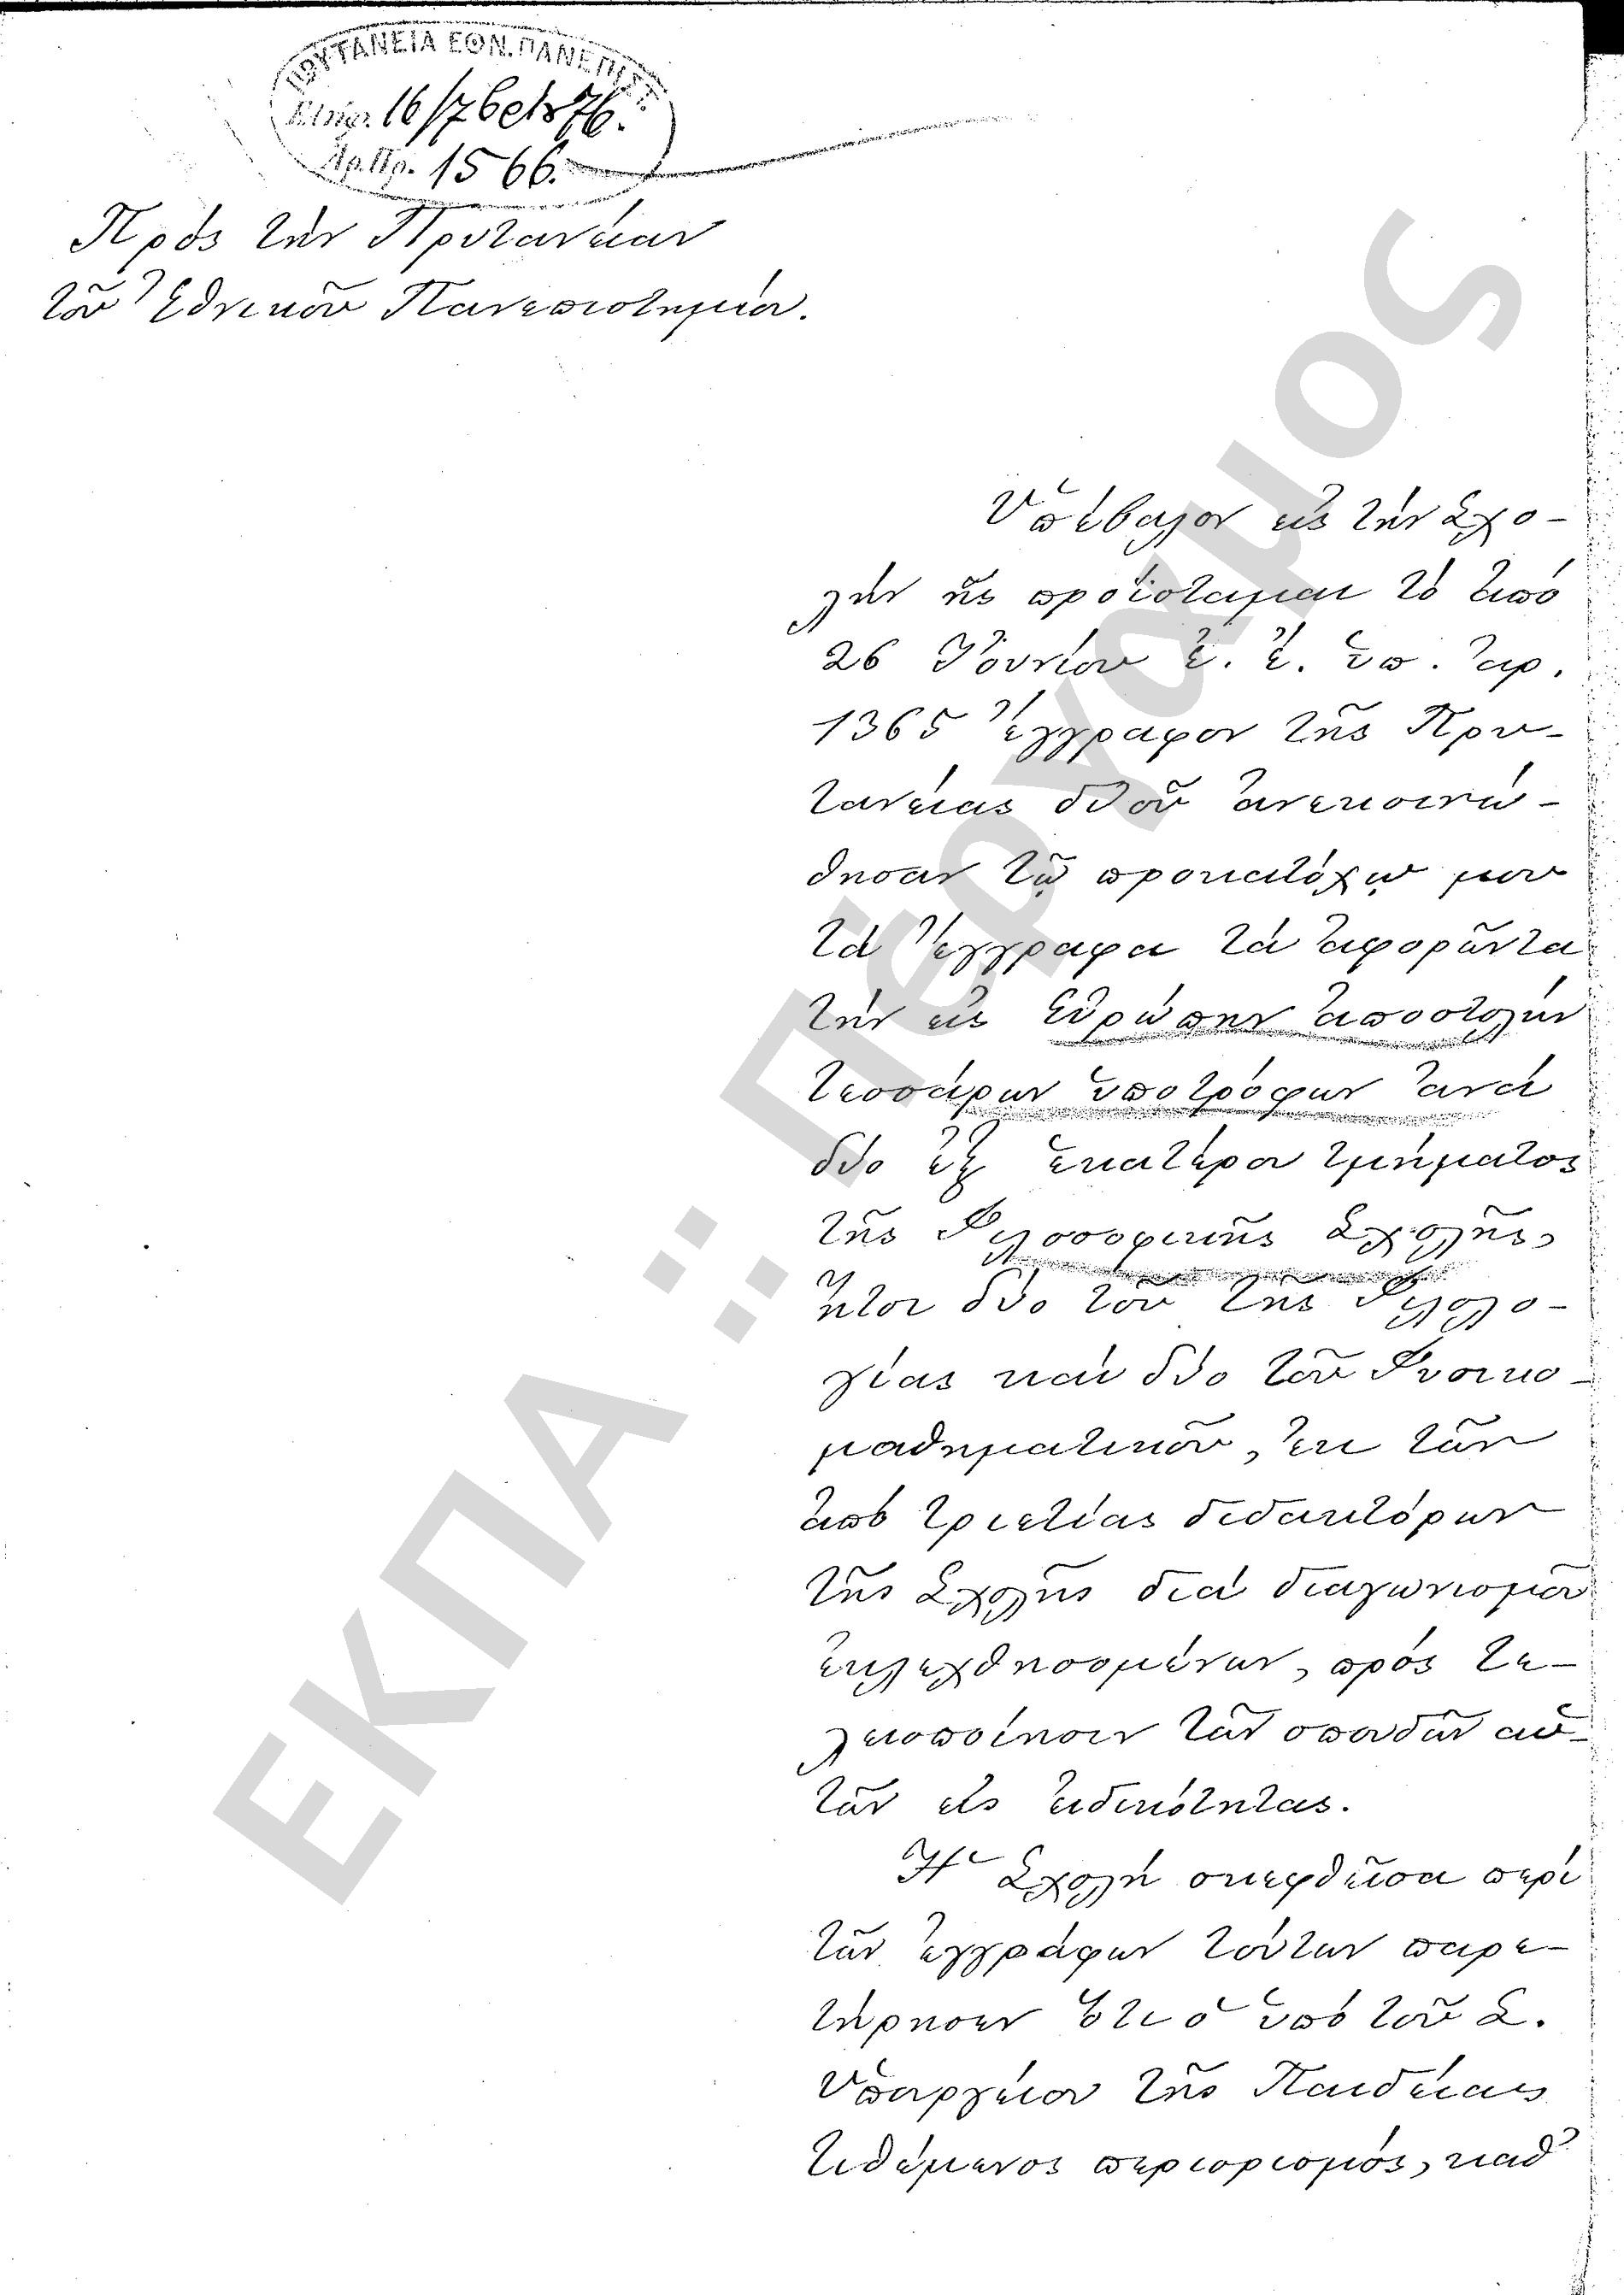 ΠΡΥΤΑΝΕΙΑ ΕΘΝ. ΠΑΝΕΠΙΣΤ.
16/7
Ἀρ. Πρ. 1566.
Πρὸς τὴν Πρυτανείαν
τοῦ Ἐθνικοῦ Πανεπιστημίου.
Ὑπέβαλον εἰς τὴν Σχο-
λὴν ἧς προΐσταμαι τὸ ἀπὸ
26 Ἰουνίου ἐ. ἔ. ὑπ. ἀρ.
1365 ἔγγραφον τῆς Πρυ-
τανείας δι' οὗ ἀνεκοινώ-
θησαν τῷ προκατόχῳ μου
τὰ ἔγγραφα τὰ ἀφορῶντα
τὴν εἰς Εὐρώπην ἀποστολὴν
τεσσάρων ὑποτρόφων ἀνὰ
δύο ἐξ ἑκατέρου τμήματος
τῆς Φιλοσοφικῆς Σχολῆς,
ἤτοι δύο τοῦ τῆς Φιλολο-
γίας καὶ δύο τοῦ Φυσικο-
μαθηματικοῦ, ἐκ τῶν
ἀπὸ τριετίας διδακτόρων
τῆς Σχολῆς διὰ διαγωνισμοῦ
ἐκλεχθησομένων, πρὸς τε-
λειοποίησιν τῶν σπουδῶν αὐ-
τῶν εἰς εἰδικότητας.
Ἡ Σχολὴ σκεφθεῖσα περὶ
τῶν ἐγγράφων τούτων παρε-
τήρησεν ὅτι ὁ ὑπὸ τοῦ Σ.
Ὑπουργείου τῆς Παιδείας
τιθέμενος περιορισμός, καθ'
ΕΚΠΑ :: Πέργαμος